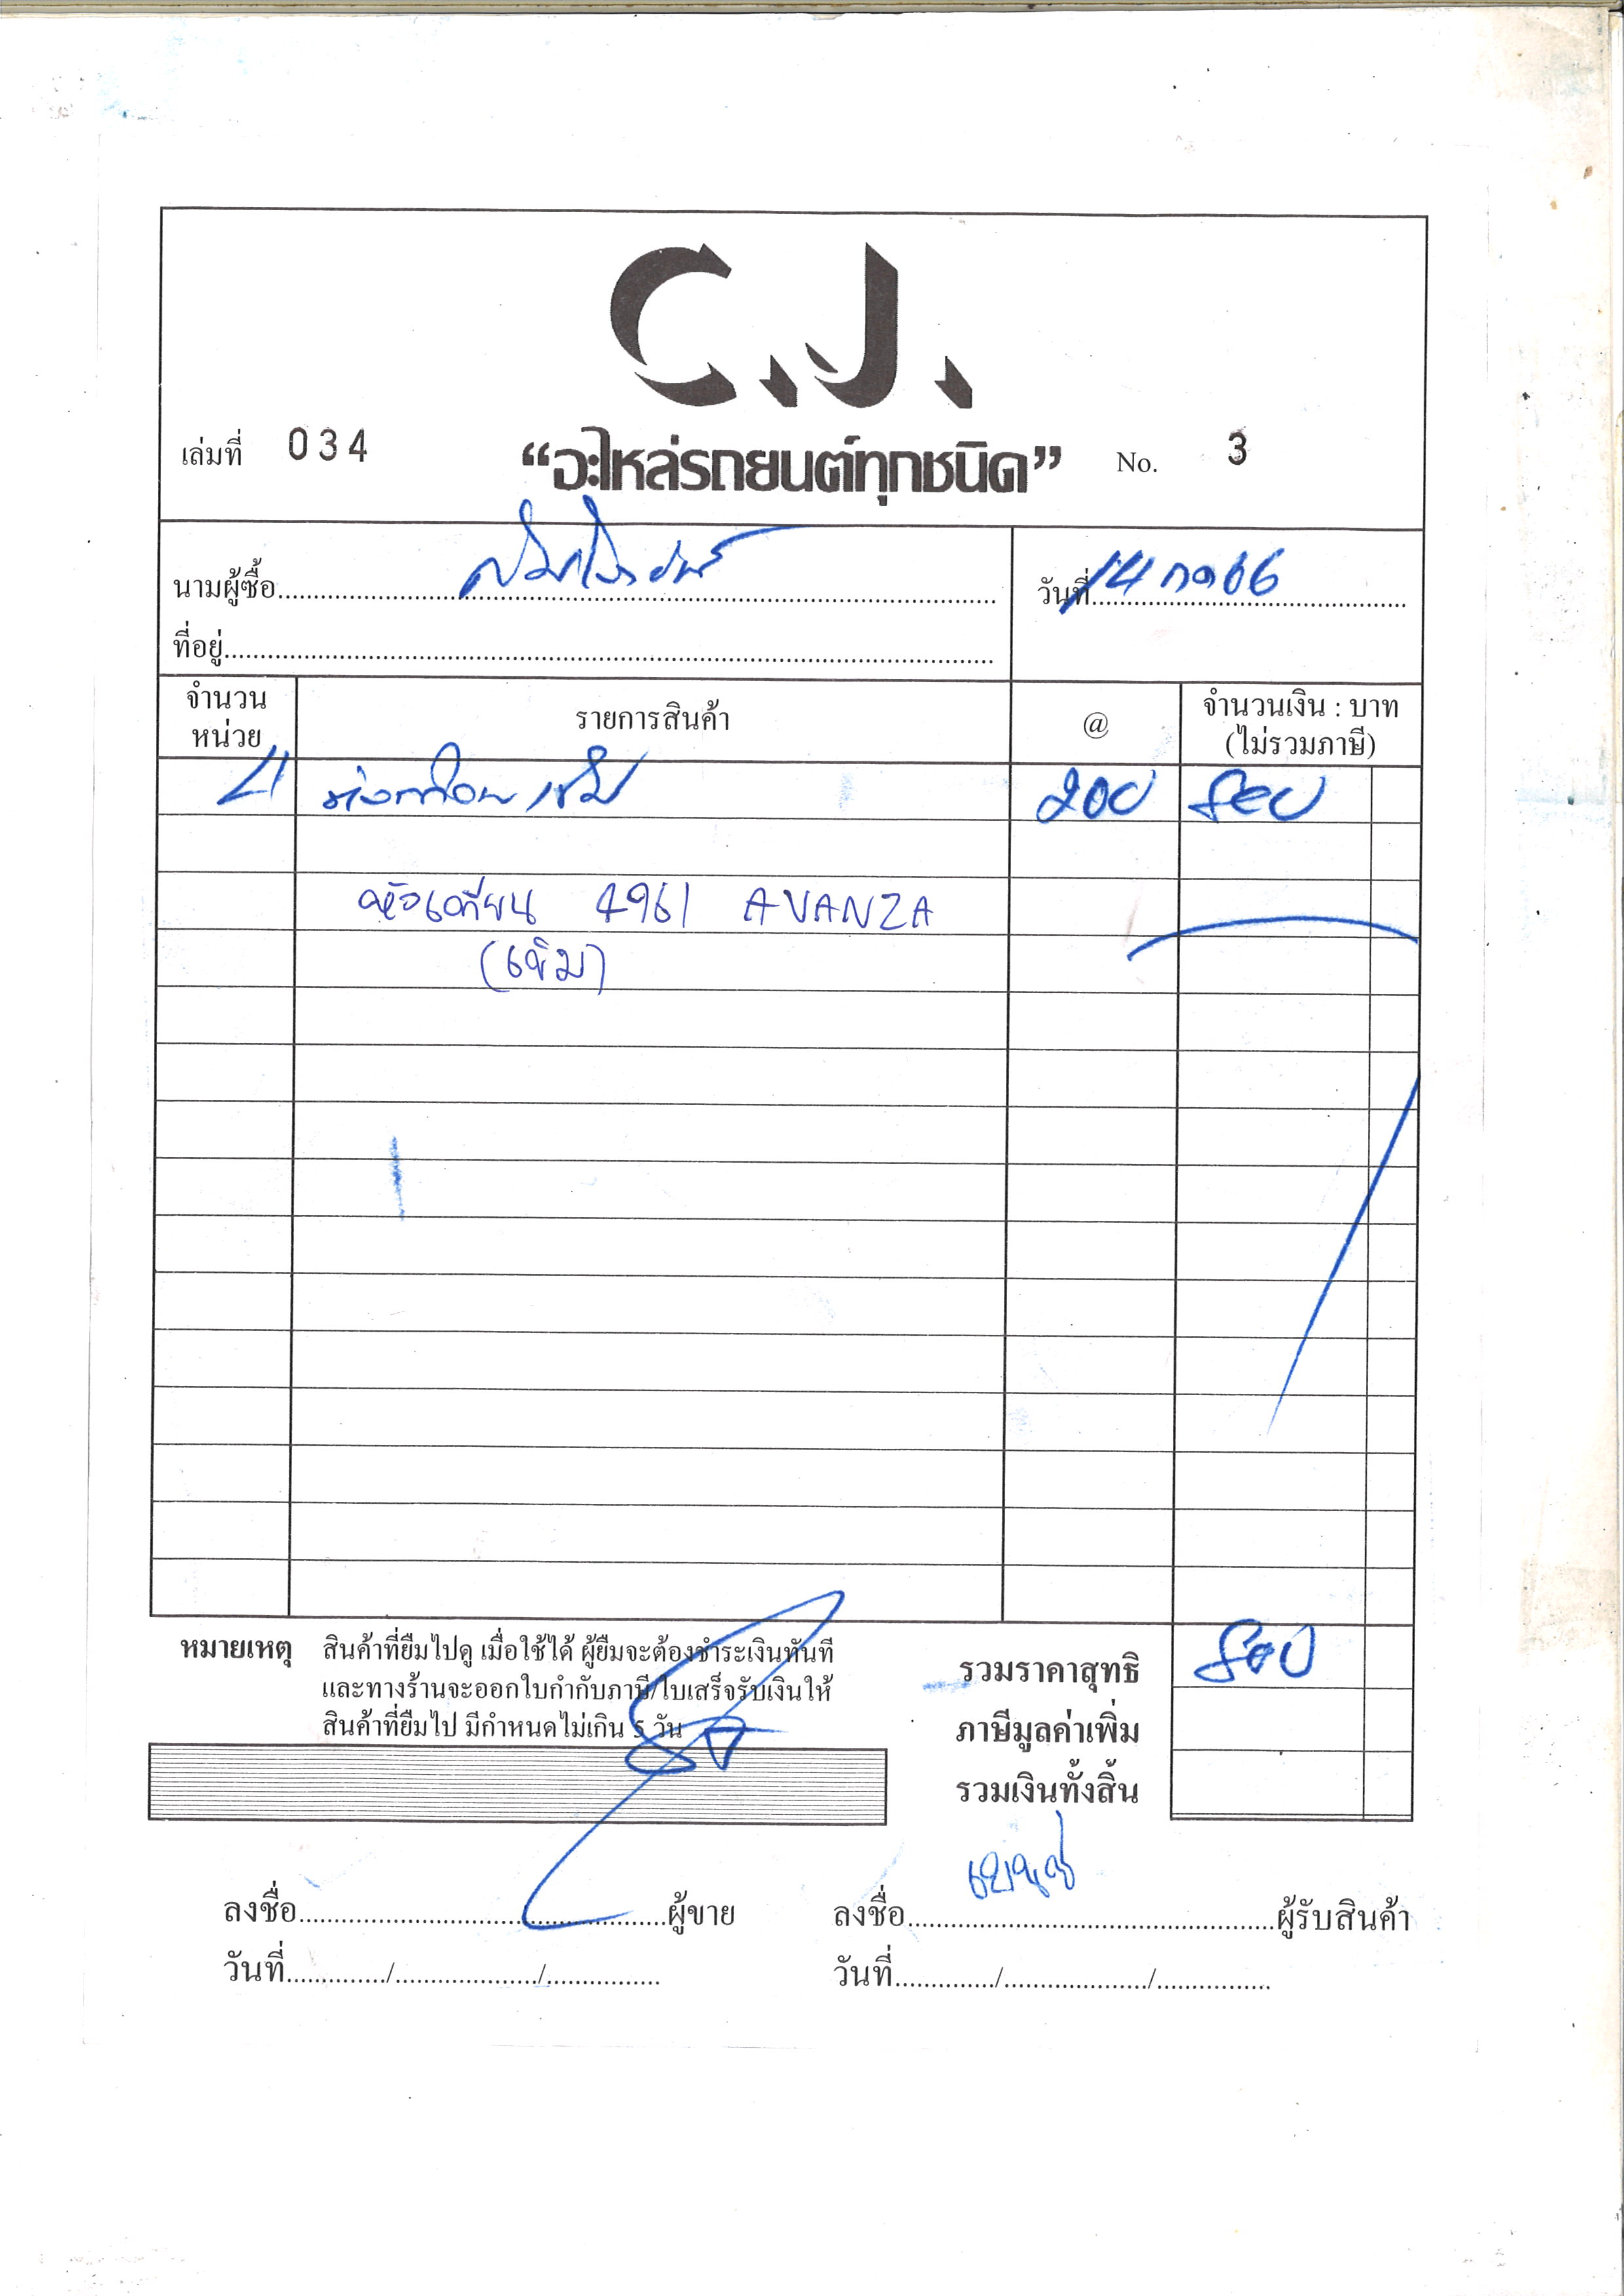 C.J.
เล่มที่ 034 “อะไหล่รถยนต์ทุกชนิด” No. 3
นามผู้ซื้อ
วันที่ 14 กค 66
ที่อยู่
จำนวนหน่วย รายการสินค้า @ จำนวนเงิน : บาท (ไม่รวมภาษี)
4 200 800
หัวเทียน 4961 AVANZA
(เข็ม)
หมายเหตุ สินค้าที่ยืมไปดู เมื่อใช้ได้ ผู้ยืมจะต้องชำระเงินทันที
และทางร้านจะออกใบกำกับภาษี/ใบเสร็จรับเงินให้
สินค้าที่ยืมไป มีกำหนดไม่เกิน 5 วัน
รวมราคาสุทธิ 800
ภาษีมูลค่าเพิ่ม
รวมเงินทั้งสิ้น
ลงชื่อ ผู้ขาย ลงชื่อ ผู้รับสินค้า
วันที่ / / วันที่ / /